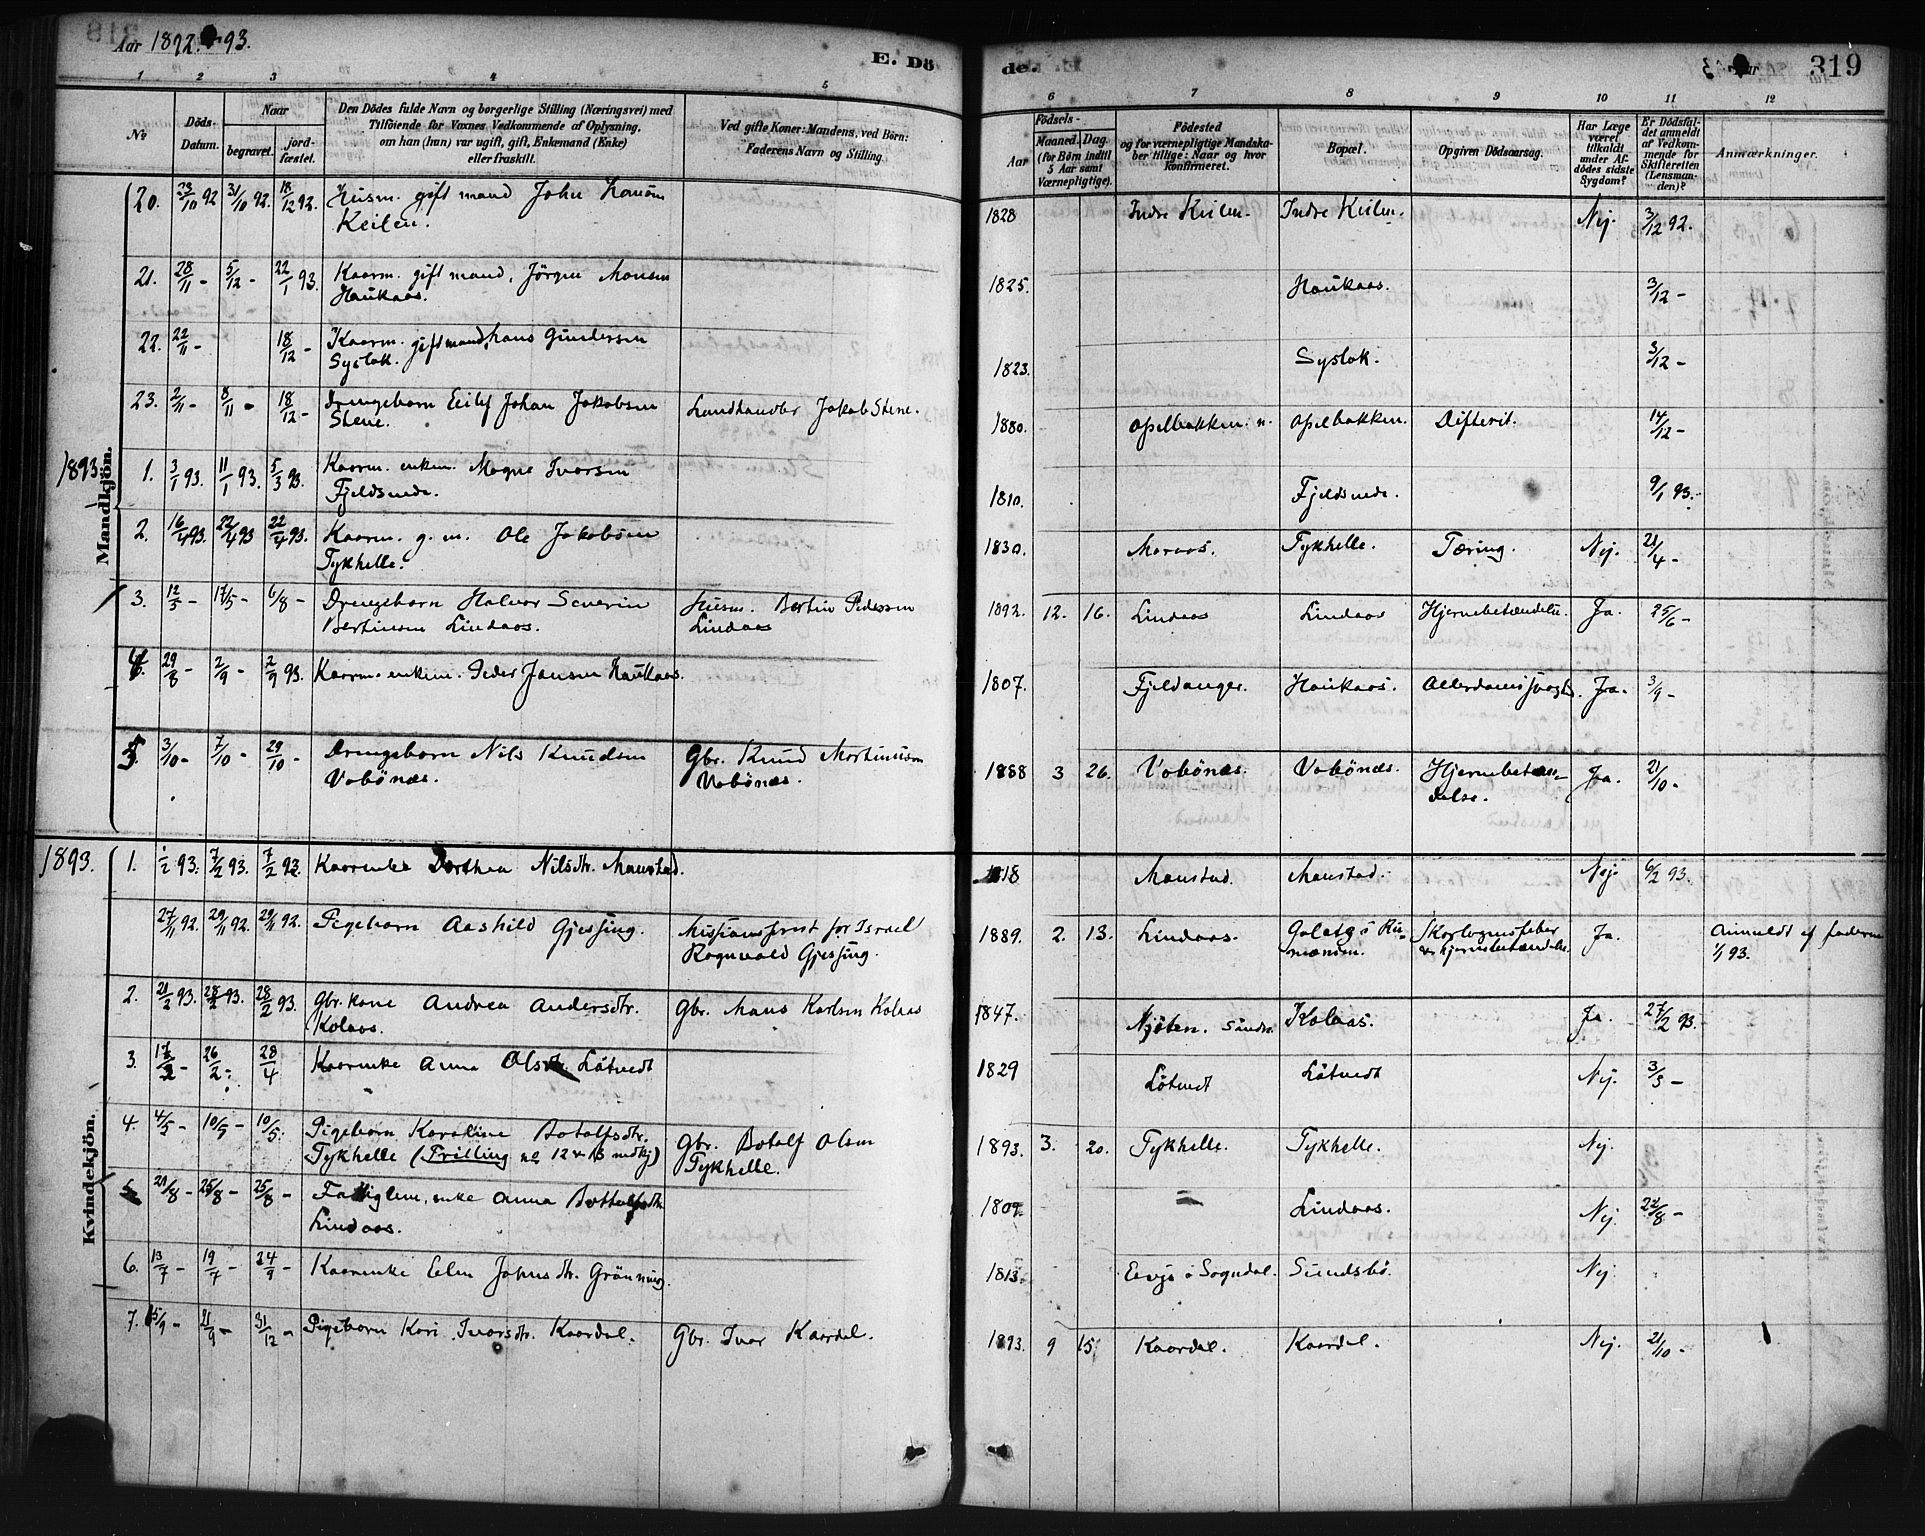 Aar 1892-93.
E. Döde.
319
1 2 3 4 5 6 7 8 9 10 11 12
No
Döds-Datum.
Naar
begravet.
jordfæstet.
Den Dödes fulde Navn og borgerlige Stilling (Næringsvei) med
Tilföiende for Voxnes Vedkommende af Oplysning,
om han (hun) var ugift, gift, Enkemand (Enke)
eller fraskilt.
Ved gifte Koner: Mandens, ved Börn:
Faderens Navn og Stilling.
Födsels-
Aar
Maaned. Dag.
(for Börn indtil
5 Aar samt
Værnepligtige).
Födested
og for værnepligtige Mandskaber tillige: Naar og hvor
Konfirmeret.
Bopæl.
Opgiven Dödsaarsag.
Har Læge
været
tilkaldt
under Afdödes sidste
Sygdom?
Er Dödsfaldet anmeldt
af Vedkommende for
Skifteretten
(Lensmanden)?
Anmærkninger.
Mandkjön.
20. 23/10 92 31/10 92. 18/12 92. Husm. gift mand John
Keilen. 1828 Indre Keilen. Indre Keilen. Nej. 3/12 92.
21. 28/11 - 5/12 - 22/1 93. Kaarm. gift mand, Jörgen Monsen
Haukaas. 1825. Haukaas. 3/12 -
22. 22/11 - 18/12 - Kaarm. gift mand, Hans Gundersen
Syslak. 1823. Syslak. 3/12 -
23. 2/11 - 8/11 - 18/12 - Drengebarn Eilef Johan Jakobsen
Stene. Landhandler Jakob Stene. 1880. Opelbakken. Opelbakken. Difterit. 14/12 -
1893. 1. 3/1 93. 11/1 93. 5/3 93. Kaarm. enkem. Mogne Ivarsen
Fjeldsende. 1810. Fjeldsende. 9/1 93.
2. 16/4 93. 22/4 93 22/4 93. Kaarm. g. m. Ole Jakobsen
Tykhelle. 1830. Maraas. Tykhelle. Tæring. Nej. 21/4 -
3. 12/5 - 17/5 - 6/8 - Drengebarn Halvor Severin
Bertinsen Lindaas. Husm. Bertin Pedersen
Lindaas 1892. 12. 16. Lindaas Lindaas Hjernebetændelse. Ja. 25/6 -
4. 29/8 - 2/9 - 2/9 93. Kaarm. enkem. Peder Jansen Haukaas. 1807. Fjeldanger. Haukaas. Alderdomssvaghed. Ja. 3/9 -
5. 3/10 - 7/10 - 29/10 - Drengebarn Nils Knudsen
Vobönæs. Gbr. Knud Mortinusen
Vobönæs. 1888 3 26. Vobönæs. Vobönæs. Hjernebetændelse. Ja. 21/10 -
Kvindekjön.
1893. 1. 1/2 93. 7/2 93. 7/2 93. Kaarenke Dorthea Nilsdtr. Monstad. 1818 Monstad. Monstad. Nej. 6/2 93.
27/11 92. 29/11 92. 29/11 92. Pigebarn Aashild Gjessing. Missionsprest for Israel
Rognvald Gjessing. 1889. 2. 13. Lindaas. Galatz i Rumænien. Skarlagensfeber
& hjernebetændelse. Ja. Anmeldt af faderen
1/1 93.
2. 21/2 93. 28/2 93. 28/2 93. Gbr. kone Andrea Andersdtr.
Kolaas. Gbr. Mons Karlsen Kolaas 1847. Njöten. söndre Kolaas. Ja. 27/2 93.
3. 17/2 - 26/2 - 28/4 Kaarenke Anna Olsdtr. Lötvedt 1829 Lötvedt Lötvedt Nej. 3/3 -
4. 4/5 - 10/5 - 10/5. Pigebarn Karoline Botolfsdtr.
Tykhelle (Trilling no 12 & 13 mdkj) Gbr. Botolf Olsen
Tykhelle. 1893. 3. 20. Tykhelle. Tykhelle. Nej.
5. 21/8 - 25/8 - 25/8 - Fattiglem, enke Anna Bottolfsdtr.
Lindaas. 1809. - Lindaas. Nej. 22/8 -
6. 13/7 - 19/7 - 24/9 - Kaarenke Elen Johnsdtr. Grönning. 1813. i Sogndal. Sundsbö. Nej.
7. 15/9 - 21/9 - 31/12 - Pigebarn Kari Ivarsdtr. Kaardal. Gbr. Ivar Kaardal. 1893. 9 15. Kaardal. Kaardal. Nej. 21/10 -